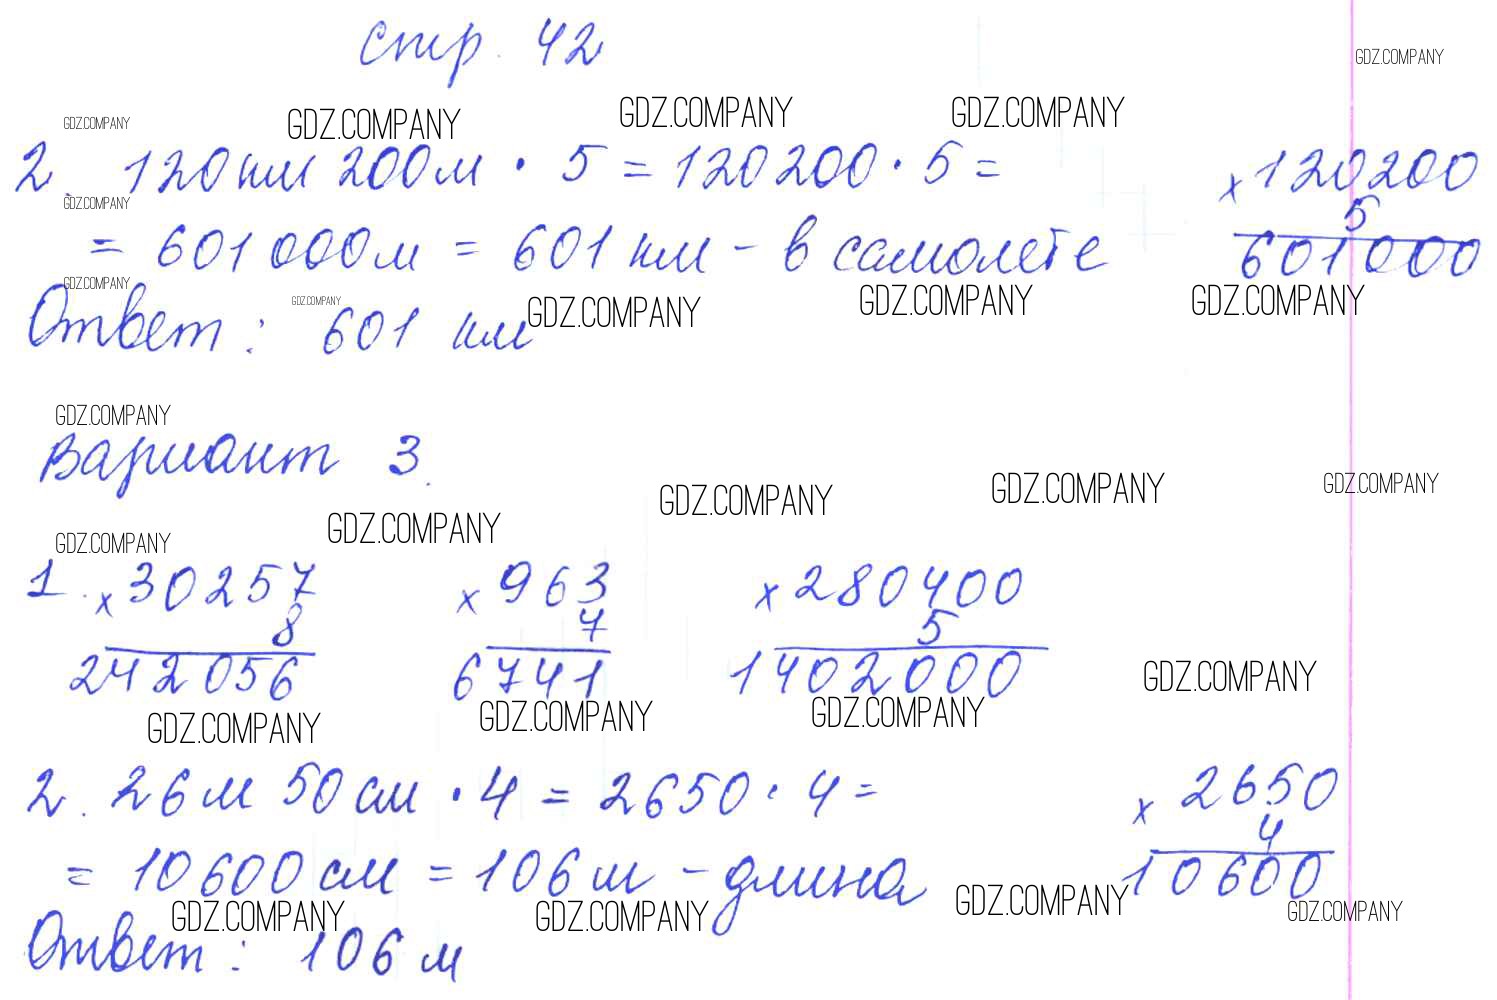 стр. 42
GDZ.COMPANY
GDZ.COMPANY GDZ.COMPANY GDZ.COMPANY GDZ.COMPANY
2. 120 км 200 м · 5 = 120200 · 5 = × 120200
GDZ.COMPANY 5
= 601 000 м = 601 км - в самолете 601000
GDZ.COMPANY GDZ.COMPANY GDZ.COMPANY GDZ.COMPANY GDZ.COMPANY
Ответ: 601 км
GDZ.COMPANY
Вариант 3.
GDZ.COMPANY GDZ.COMPANY GDZ.COMPANY
GDZ.COMPANY GDZ.COMPANY
1. × 30257 × 963 × 280400
8 7 5
242056 6741 1402000
GDZ.COMPANY
GDZ.COMPANY GDZ.COMPANY GDZ.COMPANY
2. 26 м 50 см · 4 = 2650 · 4 = × 2650
4
= 10600 см = 106 м - длина 10600
GDZ.COMPANY GDZ.COMPANY GDZ.COMPANY GDZ.COMPANY
Ответ: 106 м